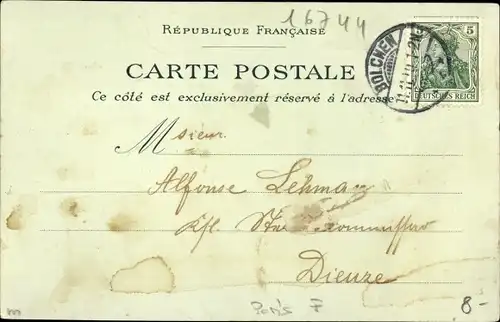 16744
RÉPUBLIQUE FRANÇAISE
5
BOLCHEN
DEUTSCHES REICH
CARTE POSTALE
Ce côté est exclusivement réservé à l'adresse
Msieur
Alfonse Lehman
Kfl.
Dieuze
Paris 7
8-